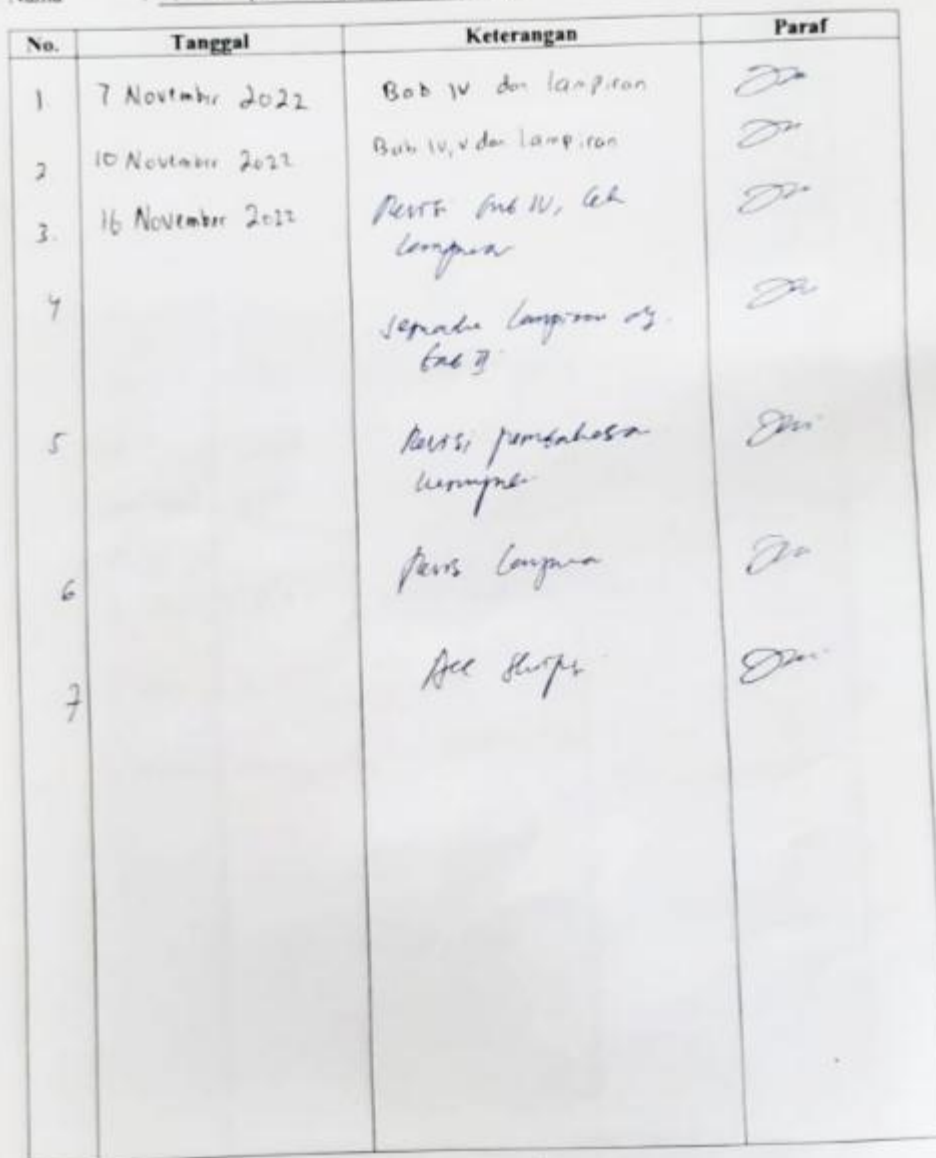 No. Tanggal Keterangan Paraf
1. 7 November 2022 Bab IV dan lampiran
2 10 November 2022 Bab IV, V dan lampiran
3. 16 November 2022 Revisi bab IV, cek
lampiran
4 lampiran dg.
bab II
5 Revisi pembahasan
6 Revisi lampiran
7 Acc Skripsi